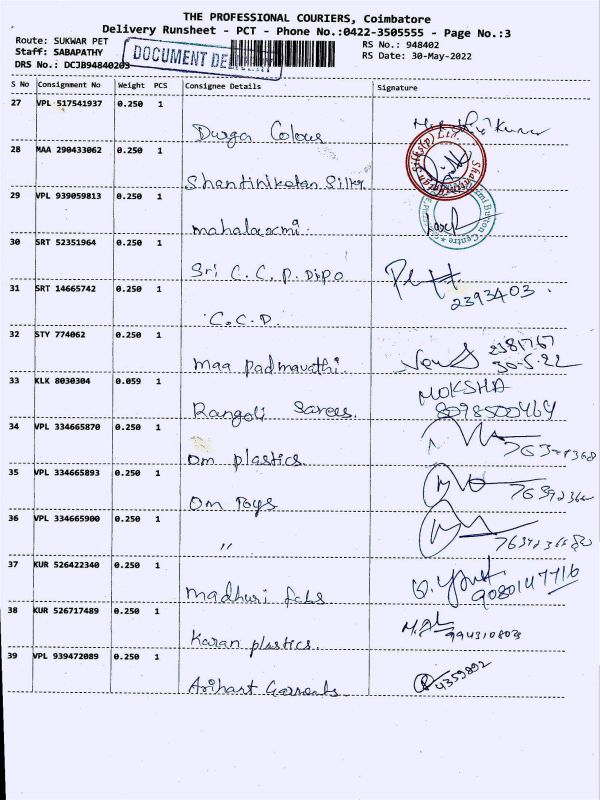 THE PROFESSIONAL COURIERS, Coimbatore
Delivery Runsheet - PCT - Phone No.:0422-3505555 - Page No.:3
Route: SUKWAR PET
RS No.: 948402
Staff: SABAPATHY
RS Date: 30-May-2022
DRS No.: DCJB94840203
DOCUMENT DE
S No Consignment No Weight PCS Consignee Details Signature
27 VPL 517541937 0.250 1
Durga Colour
28 MAA 290433062 0.250 1
Shantiniketan Silks
29 VPL 939059813 0.250 1
mahalaxmi.
30 SRT 52351964 0.250 1
Sri C.C.P. Dipo
31 SRT 14665742 0.250 1
2393403.
C.C.D.
32 STY 774062 0.250 1
2381767
maa padmavathi.
30-5-22
33 KLK 8030304 0.059 1
MOKSHA
Rangoli Sarees.
8098500464
34 VPL 334665870 0.250 1
Om plastics.
35 VPL 334665893 0.250 1
Om Toys
36 VPL 334665900 0.250 1
"
37 KUR 526422340 0.250 1
9080147716
madhuri fabs
38 KUR 526717489 0.250 1
Karan plastics.
39 VPL 939472089 0.250 1
4359892
Arihant Garments.